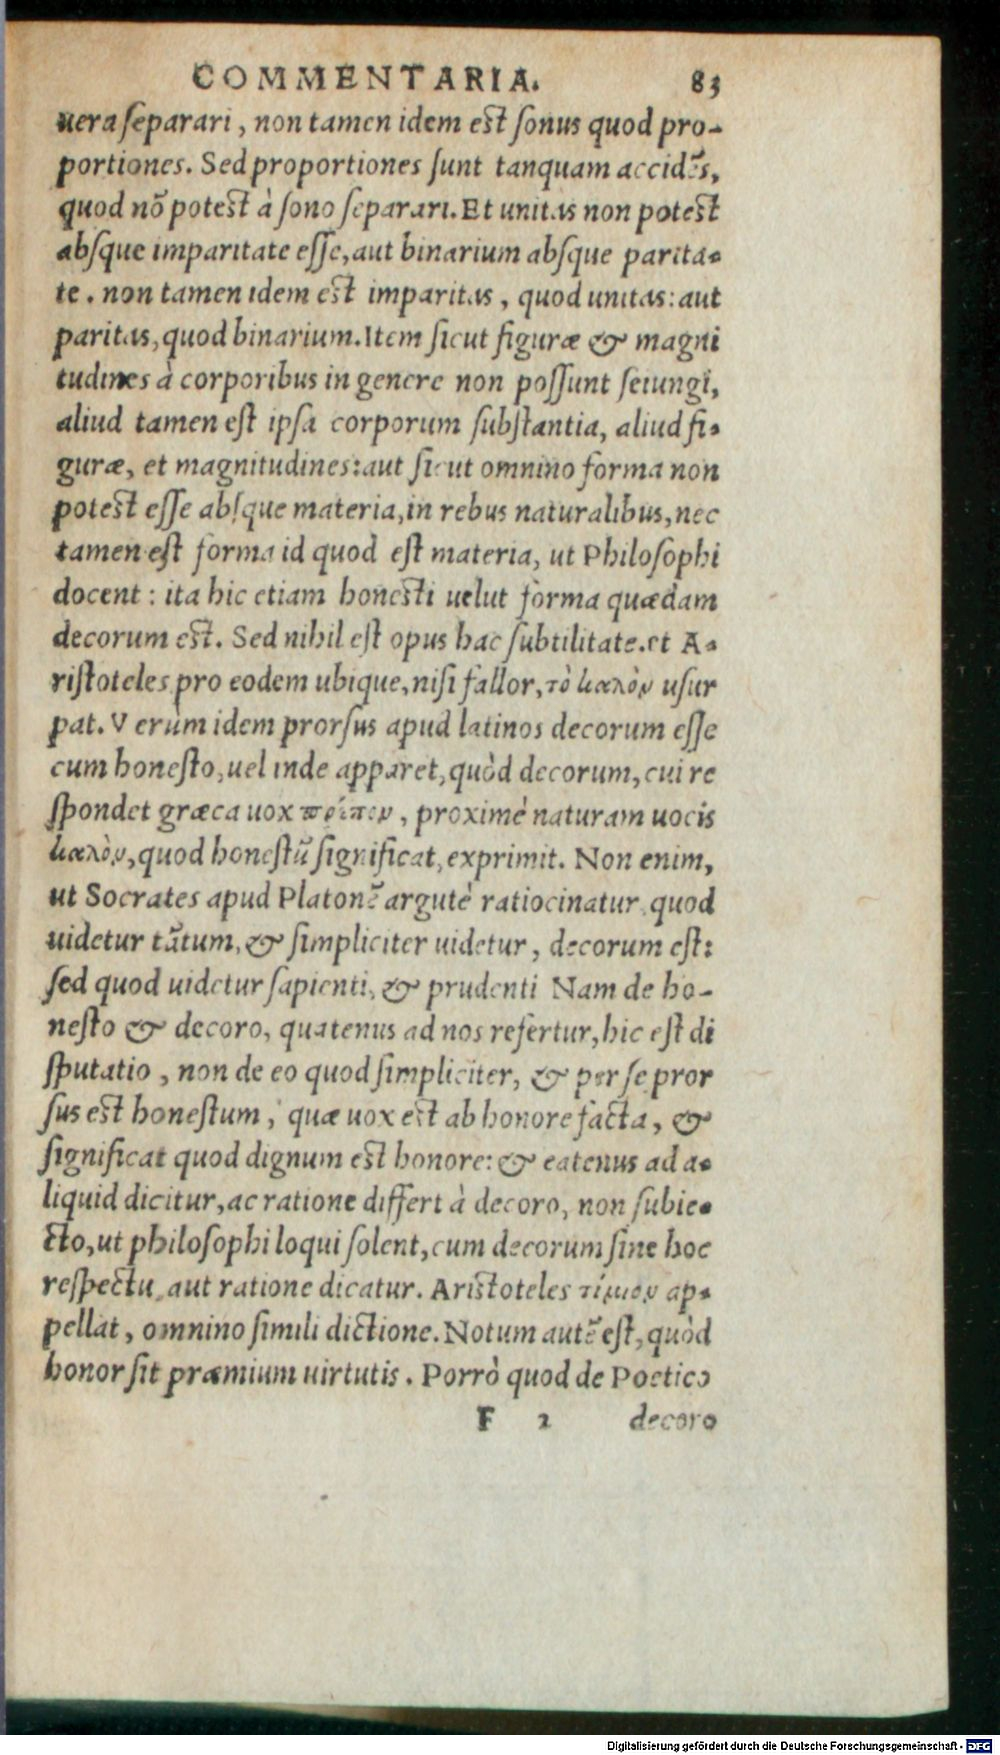 COMMENTARIA. 83
uera ſeparari, non tamen idem est ſonus quod pro-
portiones. Sed proportiones ſunt tanquam accidẽs,
quod nõ potest à ſono ſeparari. Et unitas non potest
abſque imparitate eſſe, aut binarium abſque parita-
te. non tamen idem est imparitas, quod unitas: aut
paritas, quod binarium. Item ſicut figuræ & magni
tudines à corporibus in genere non poſſunt ſeiungi,
aliud tamen eſt ipſa corporum ſubſtantia, aliud fi-
guræ, et magnitudines: aut ſicut omnino forma non
potest eſſe abſque materia, in rebus naturalibus, nec
tamen eſt forma id quod eſt materia, ut Philoſophi
docent: ita hic etiam honesti uelut forma quædam
decorum est. Sed nihil eſt opus hac ſubtilitate. et A-
riſtoteles pro eodem ubique, niſi fallor, τὸ καλὸν uſur
pat. Verùm idem prorſus apud latinos decorum eſſe
cum honeſto, uel inde apparet, quòd decorum, cui re
ſpondet græca uox πρέπον, proximè naturam uocis
καλὸν, quod honeſtũ ſignificat, exprimit. Non enim,
ut Socrates apud Platonẽ argutè ratiocinatur, quod
uidetur tãtum, & ſimpliciter uidetur, decorum eſt:
ſed quod uidetur ſapienti, & prudenti Nam de ho-
neſto & decoro, quatenus ad nos refertur, hic eſt di
ſputatio, non de eo quod ſimpliciter, & per ſe pror
ſus est honeſtum, quæ uox est ab honore facta, &
ſignificat quod dignum est honore: & eatenus ad a-
liquid dicitur, ac ratione differt à decoro, non ſubie-
cto, ut philoſophi loqui ſolent, cum decorum ſine hoc
reſpectu, aut ratione dicatur. Aristoteles τίμιον ap-
pellat, omnino ſimili dictione. Notum autẽ eſt, quòd
honor ſit præmium uirtutis. Porrò quod de Poetico
F 2 decoro
Digitalisierung gefördert durch die Deutsche Forschungsgemeinschaft - DFG